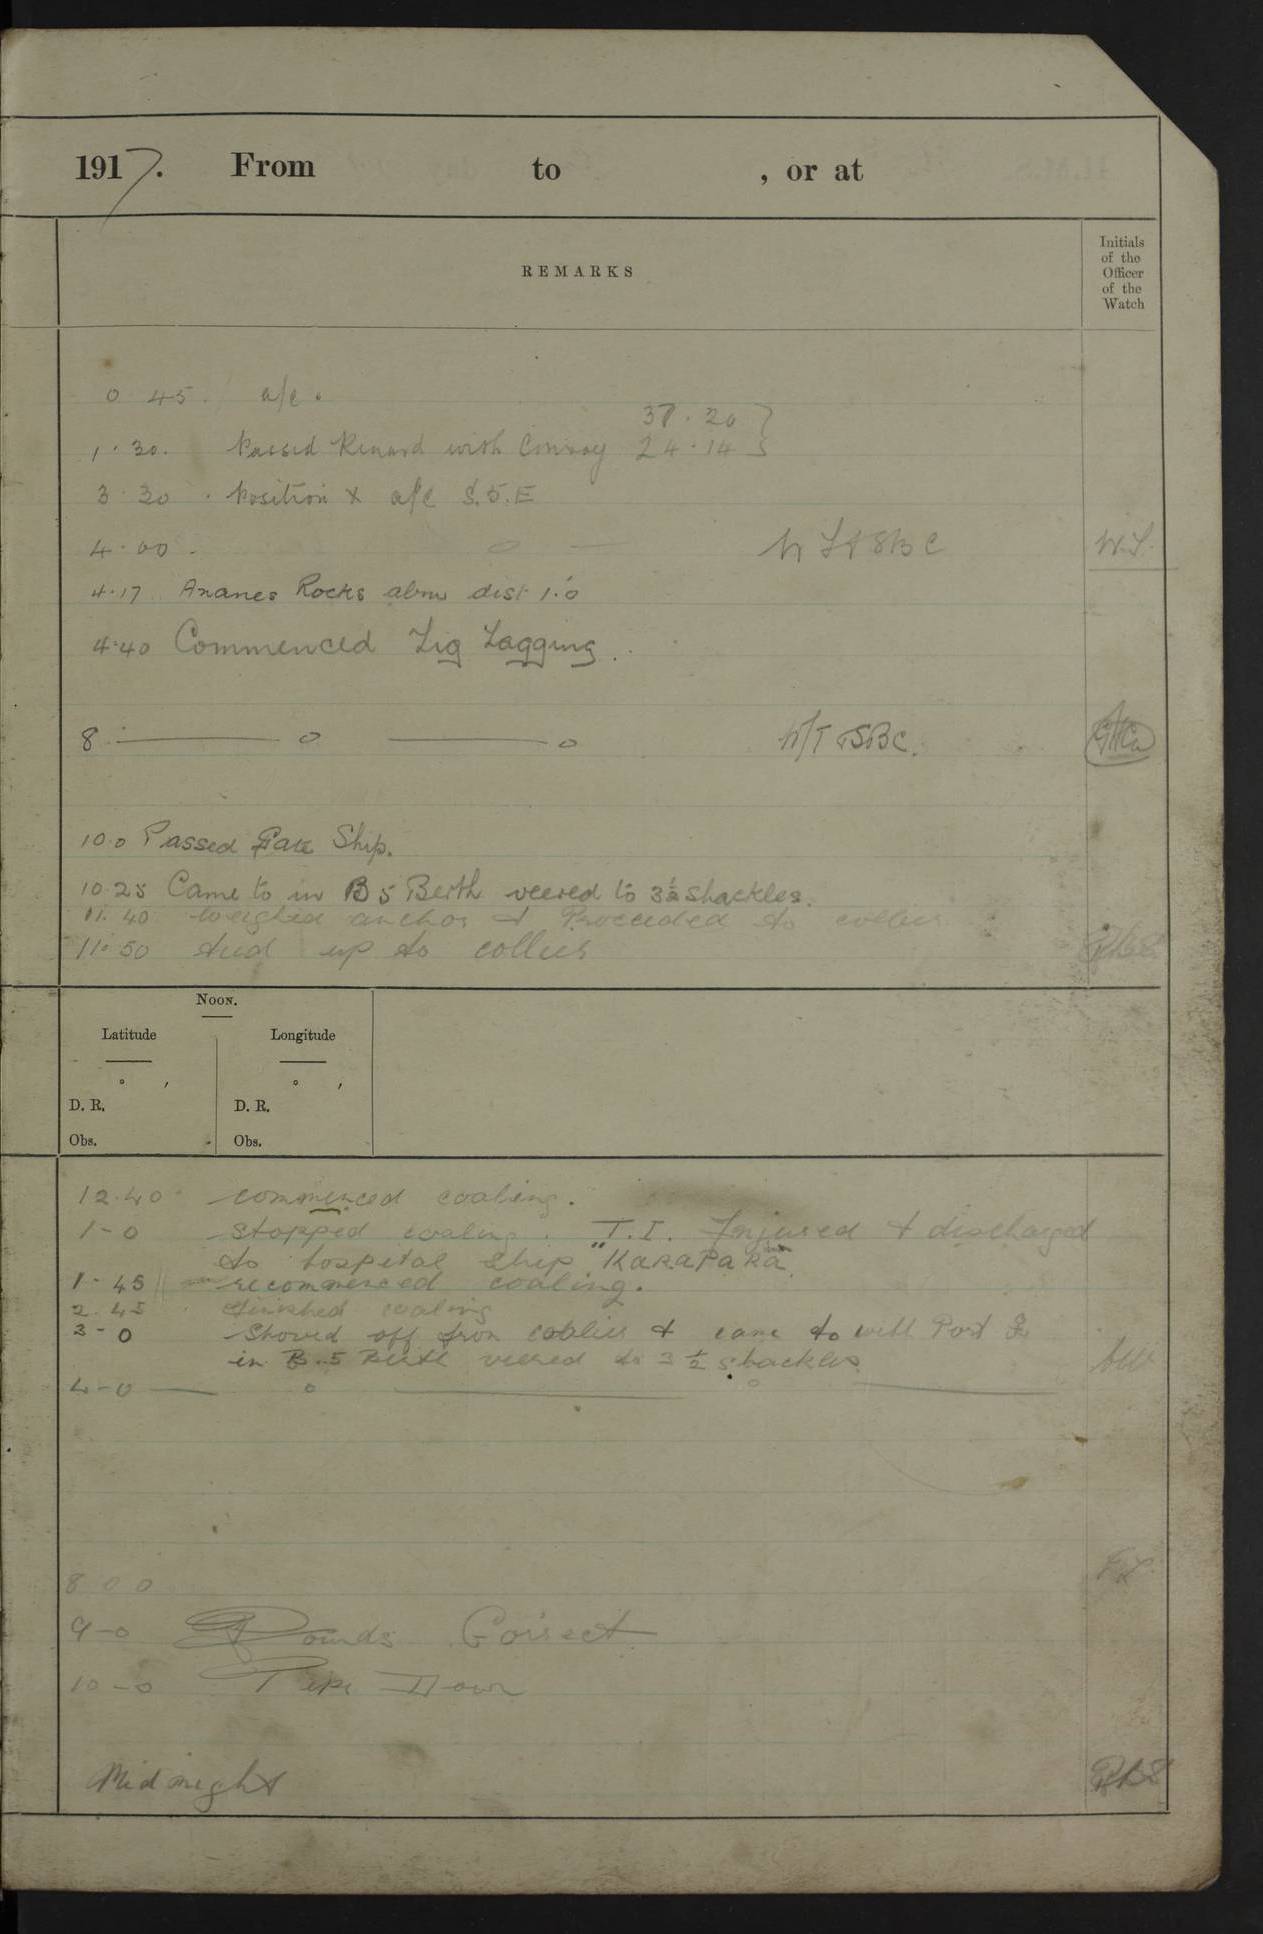 1917. From to , or at
REMARKS
Initials
of the
Officer
of the
Watch
0 45. a/c.
37.20 }
1.30. Passed Renard with Convoy 24.14
3.30. Position X a/c S.5.E
4.00. W.S.
4.17 Ananes Rocks abm dist 1.'0
4.40 Commenced Zig Zagging.
8 o o W/T SBC.
10.0 Passed Gate Ship.
10.25 Came to in B 5 Berth veered to 3½ shackles.
11.40 weighed anchor & Proceeded to collier
11.50 tied up to collier
NOON.
Latitude Longitude
° ′ ° ′
D. R. D. R.
Obs. Obs.
12.40 commenced coaling.
1-0 stopped coaling. T.I. Injured & discharged
to hospital ship "KARAPARA"
1-45 recommenced coaling.
2.45 finished coaling
3-0 Shoved off from collier & came to with Port
in B.5 Berth veered to 3½ shackles
4-0 o o
8 00
9-0 Rounds Correct
10-0 Pipe Down
Midnight